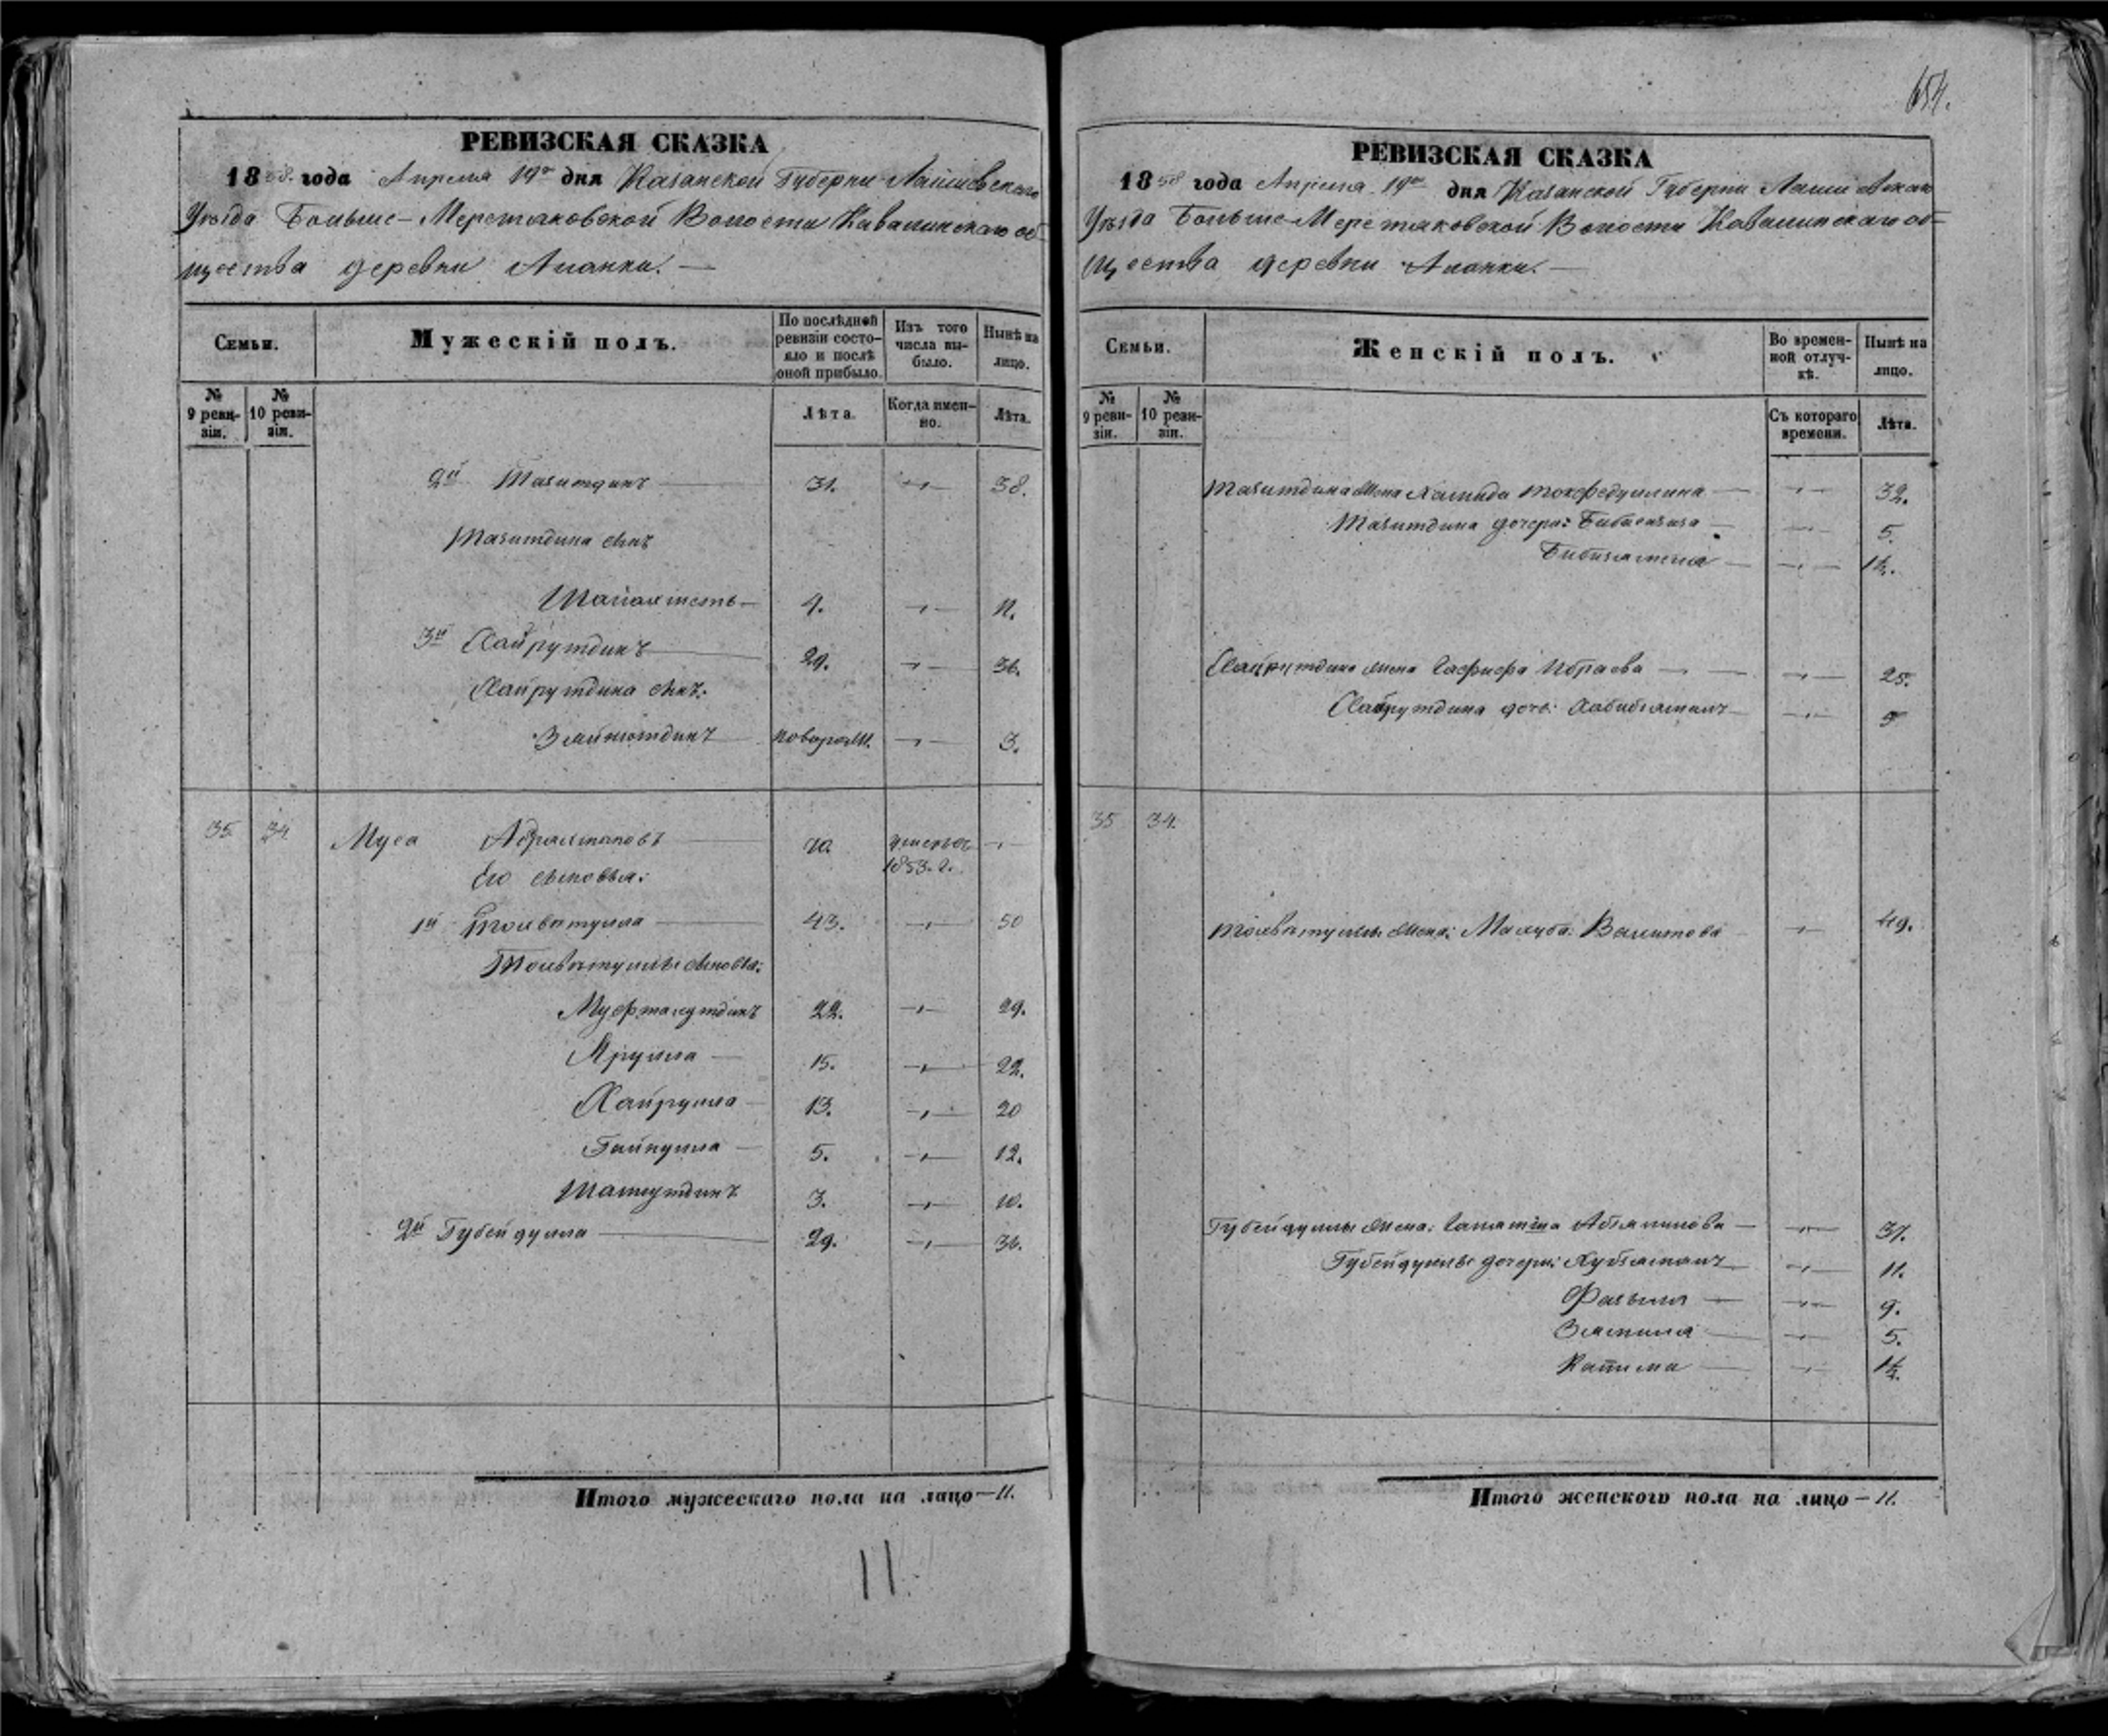 654.
РЕВИЗСКАЯ СКАЗКА
1858 года Апреля 19го дня Казанской Губернии Лаишевскаго
Уѣзда Больше-Меретяковской Волости Кавалинскаго об-
щества деревни Аланки.
Семьи.
Мужескій полъ.
По послѣдней ревизіи состояло и послѣ оной прибыло.
Изъ того числа выбыло.
Нынѣ на лицо.
№ 9 ревизіи.
№ 10 ревизіи.
Лѣта.
Когда именно.
Лѣта.
2й Тазитдинъ 31. — 38.
Тазитдина сынъ
4. — 11.
3й Хайрутдинъ 29. — 36.
Хайрутдина сынъ:
Зяйнютдинъ новорож. — 3.
35 34 Муса 70. умеръ 1853. г. —
Его сыновья:
1й 43. — 50
сыновья:
Муфтахутдинъ 22. — 29.
Ярулла — 15. — 22.
Хайрулла — 13. — 20
Гайнулла — 5. — 12.
3. — 10.
2й Губейдулла 29. — 36.
Итого мужескаго пола на лицо — 11.
11.
РЕВИЗСКАЯ СКАЗКА
1858 года Апреля 19го дня Казанской Губерніи Лаишевскаго
Уѣзда Больше-Меретяковской Волости Кавалинскаго об-
щества деревни Аланки.
Семьи.
Женскій полъ.
Во временной отлучкѣ.
Нынѣ на лицо.
№ 9 ревизіи.
№ 10 ревизіи.
Съ котораго времени.
Лѣта.
Тазитдина жена Хамида — 32.
Тазитдина дочери: — 5.
— 1½.
Хайрутдина жена Ибраева — 25.
Хайрутдина дочь: Хабибзямалъ — 5
35 34.
жена: Валитова — 49.
Губейдуллы жена: — 37.
Губейдуллы дочери: Хубзямалъ — 11.
— 9.
Зямиля — 5.
— 1½.
Итого женскаго пола на лицо — 11.